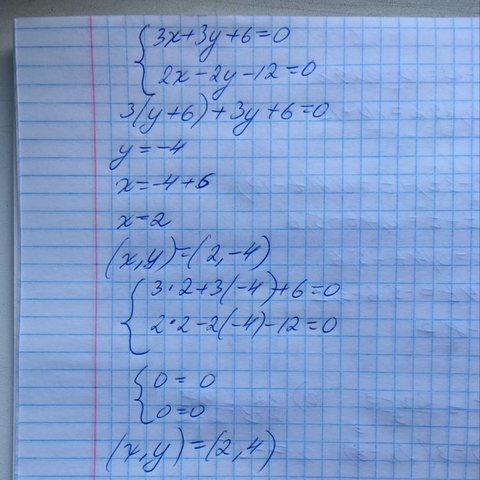 3x+3y+6=0
2x-2y-12=0
3(y+6)+3y+6=0
y=-4
x=-4+6
x=2
(x,y)=(2,-4)
3·2+3(-4)+6=0
2·2-2(-4)-12=0
0=0
0=0
(x,y)=(2,4)